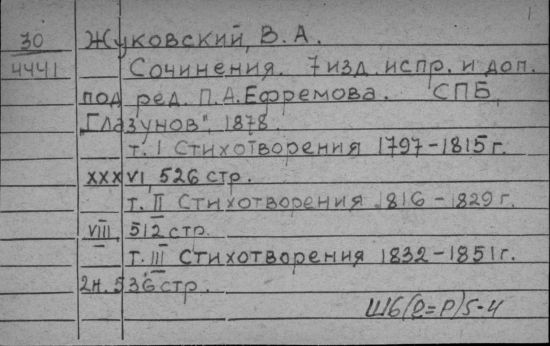 30 Жуковский, В. А.
4441 Сочинения. 7 изд. испр. и доп.
под ред. П. А. Ефремова. СПБ,
„Глазунов", 1878.
т. I Стихотворения 1797-1815 г.
XXXVI, 526 стр.
т. II Стихотворения 1816-1829 г.
VIII, 512 стр.
т. III Стихотворения 1832-1851 г.
2н. 536 стр.
Ш6(0=Р)5-4